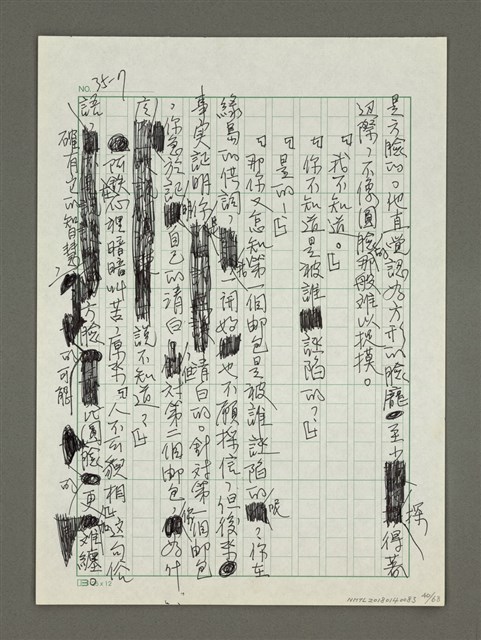 NO. 35-7
是方臉的。他直覺的認為方形的臉龐至少探得著
邊際,不像圓臉那般難以捉摸。
『我不知道。』
『你不知道是被誰誣陷的?』
『是的!』
『那你又怎知第一個邮包是被誰誣陷的呢?你在
綠島的供詞,一開始也不願採信,但後來
事实証明你是清白的。針對第一個邮包
,你急於証明自己的清白,但對第二個邮包,你為什
說不知道?』
阿欽心裡暗暗叫苦,原來「人不可貌相」這句俗
語,確有它的智慧,方臉的可能比圓臉的更難纏
HNTL20180140083 40/63